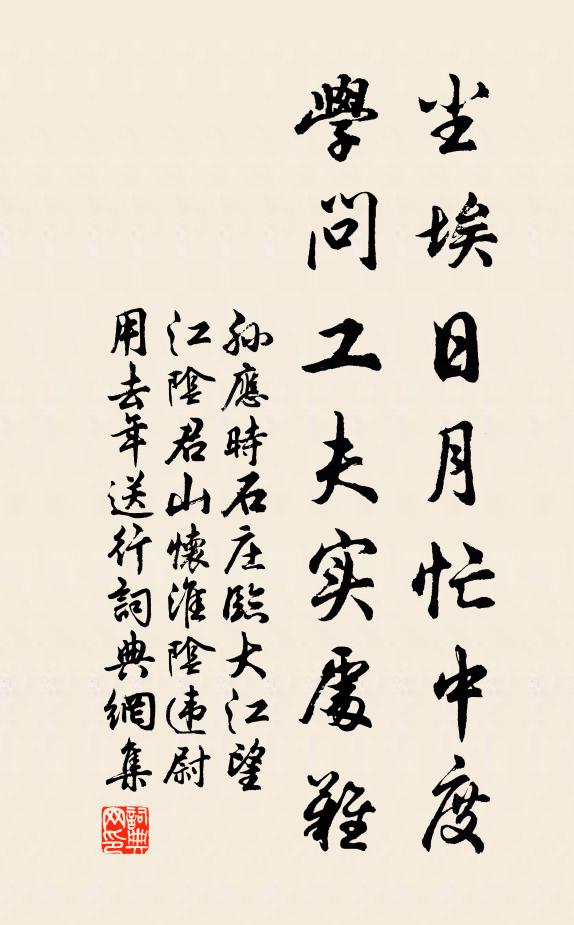 尘埃日月忙中度
學問工夫实處難
孙應時石庄臨大江望
江陰君山懷淮陰违尉
用去年送行詞典網集
詞典网印